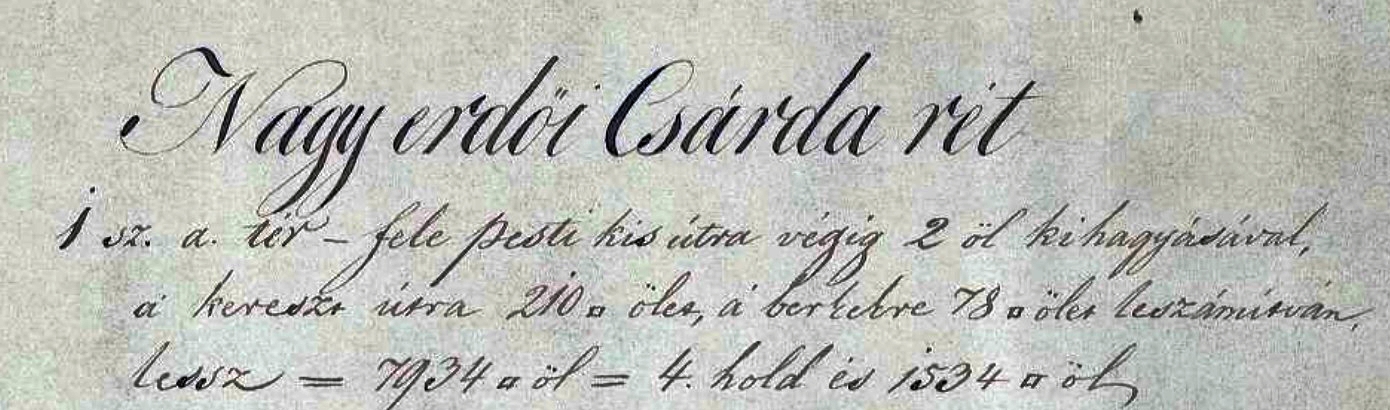 Nagy erdői Csárda rét
1 sz. a. tér - fele pesti kis útra végig 2 öl kihagyásával,
a kereszt útra 210 □ ölet, a berkekre 78 □ ölet leszámítván,
lessz = 7934 □ öl = 4. hold és 1534 □ öl